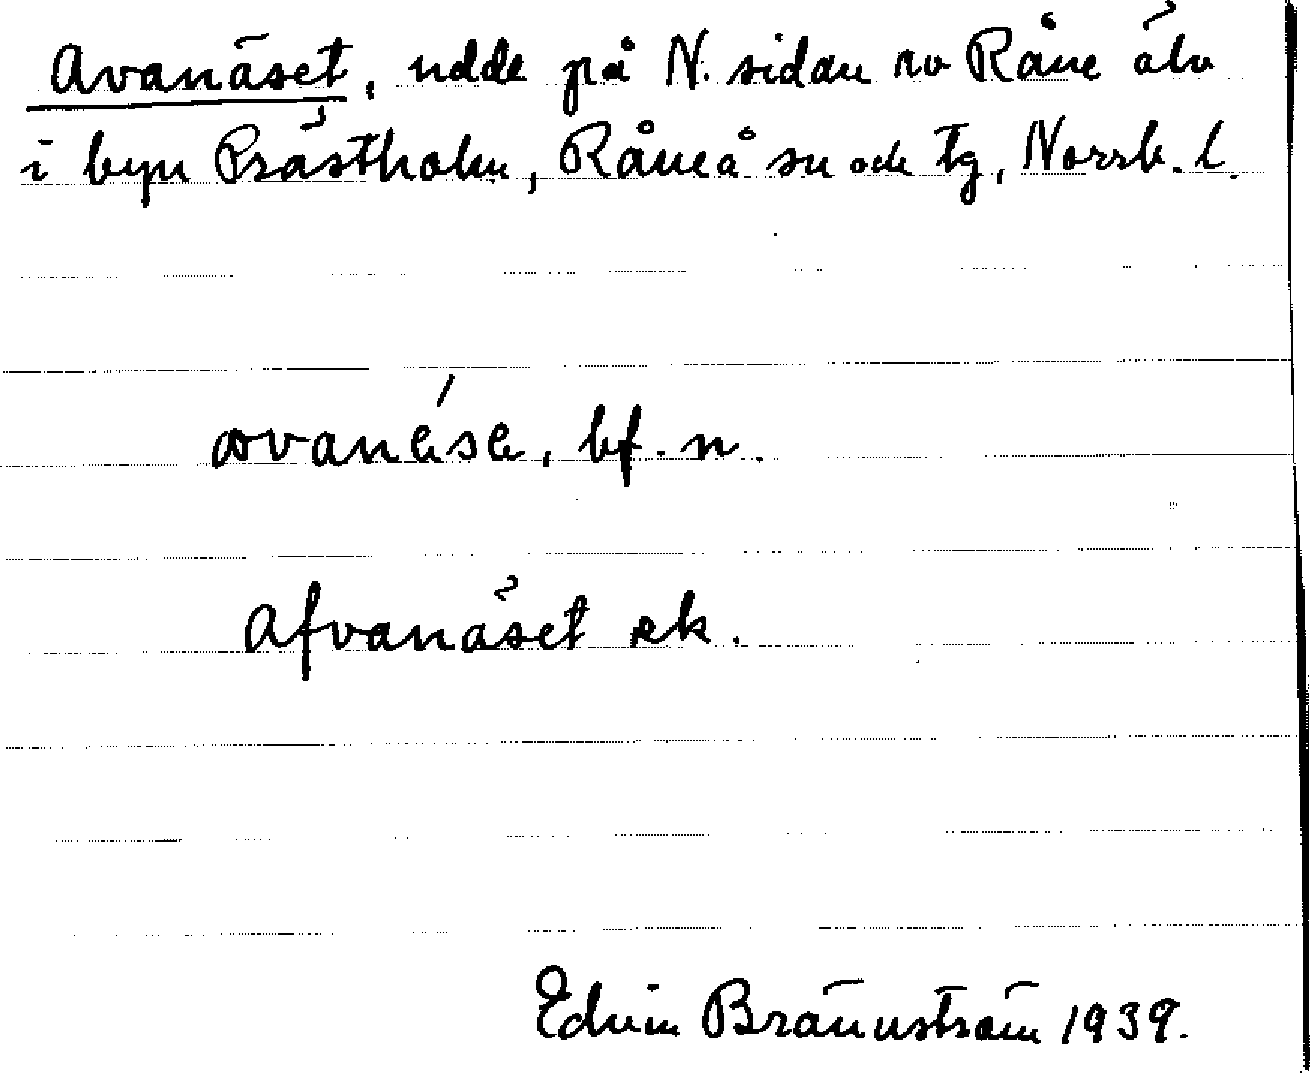 Avanäset, udde på N. sidan av Råne älv
i byn Prästholm, Råneå sn och tg, Norrb. l.
avanése, bf. n.
Afvanäset ek.
Edvin Brännström 1939.